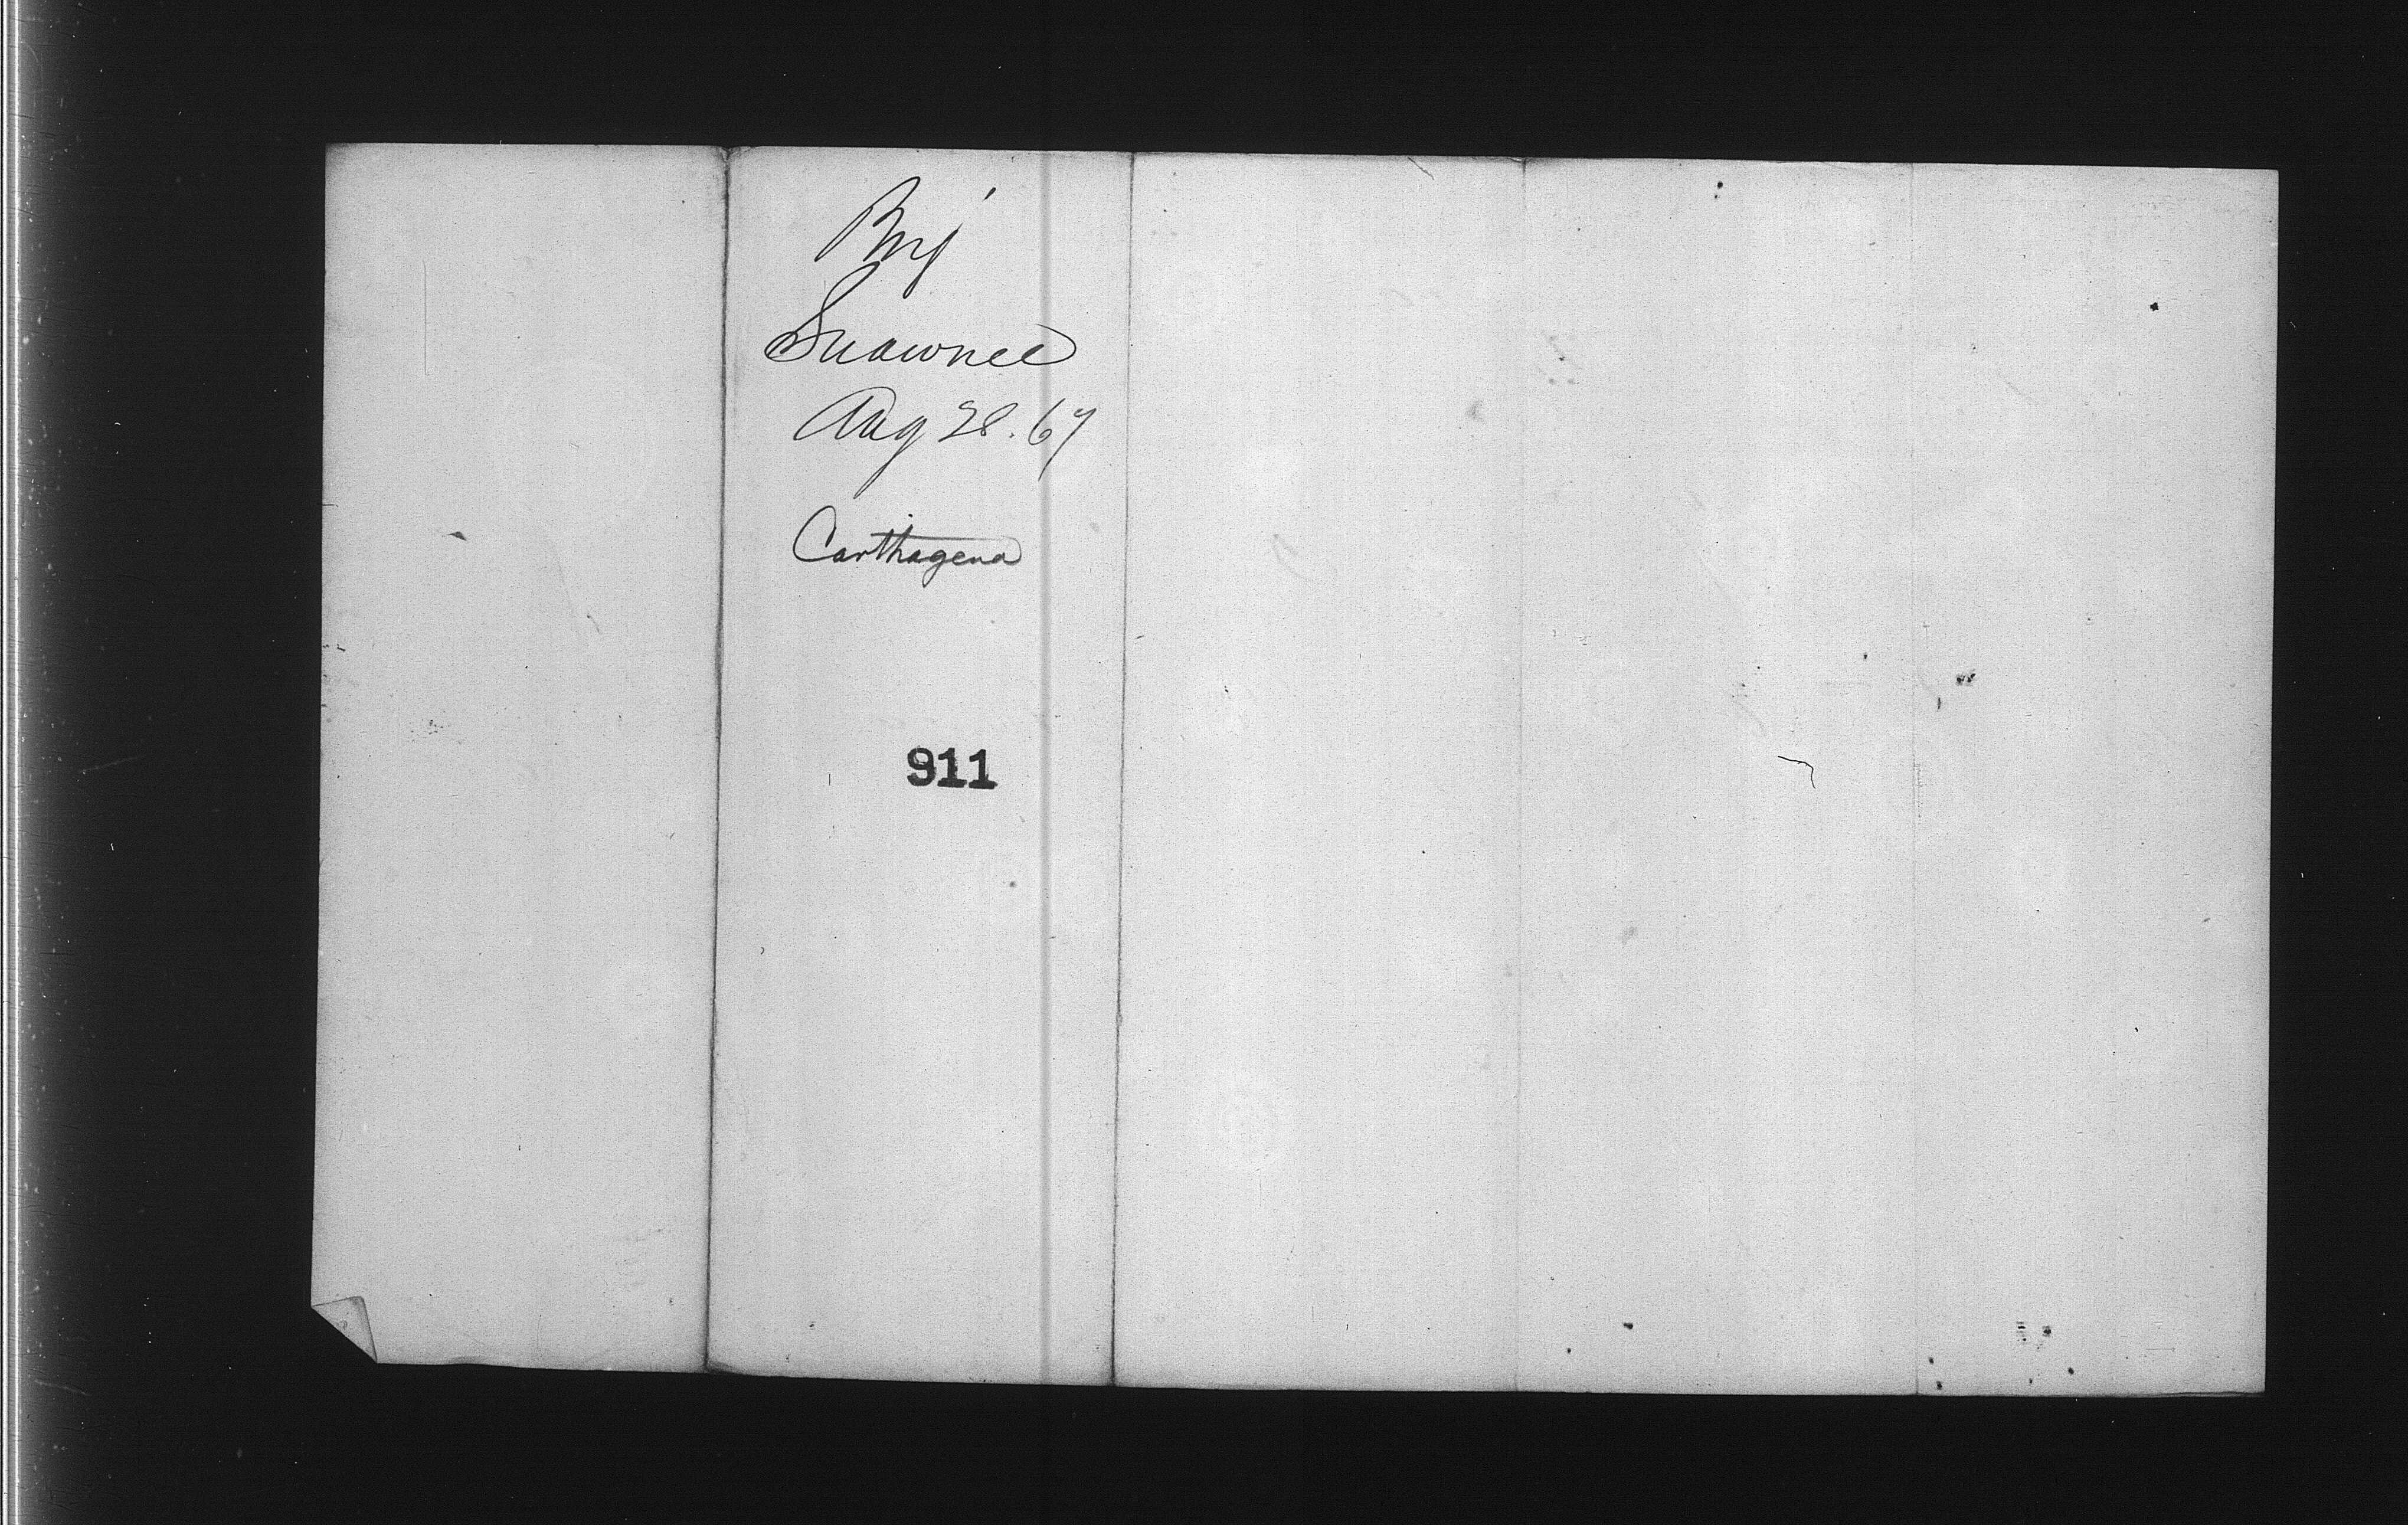 Brig
Shawnee
Aug 28. 67
Carthagena
911